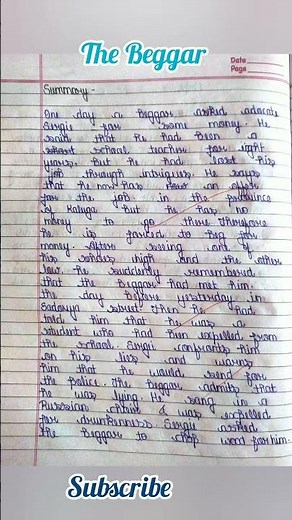 The Beggar
Date
Page
Summary -
One day a beggar asked advocate
Sergie for some money. He
said that he had been a
school teacher for eight
years. But he had lost his
job through intrigues. He says
that he now has an offer
for the job in the province
of Kaluga but he has no
money to go there. Therefore
he is forced to beg for
money. After seeing one of
his soldes high and the other
low. he suddenly remembered
that the beggar had met him
the day before yesterday in
Sadovya street. Then he had
told him that he was a
student who had been expelled from
the school. Sergei confronts him
on his lies and warns
him that he would send for
the police. The beggar admits that
he was lying. He sang in a
Russian choir & was expelled
for drunkenness. Sergie asked
the beggar to chop wood for him.
Subscribe